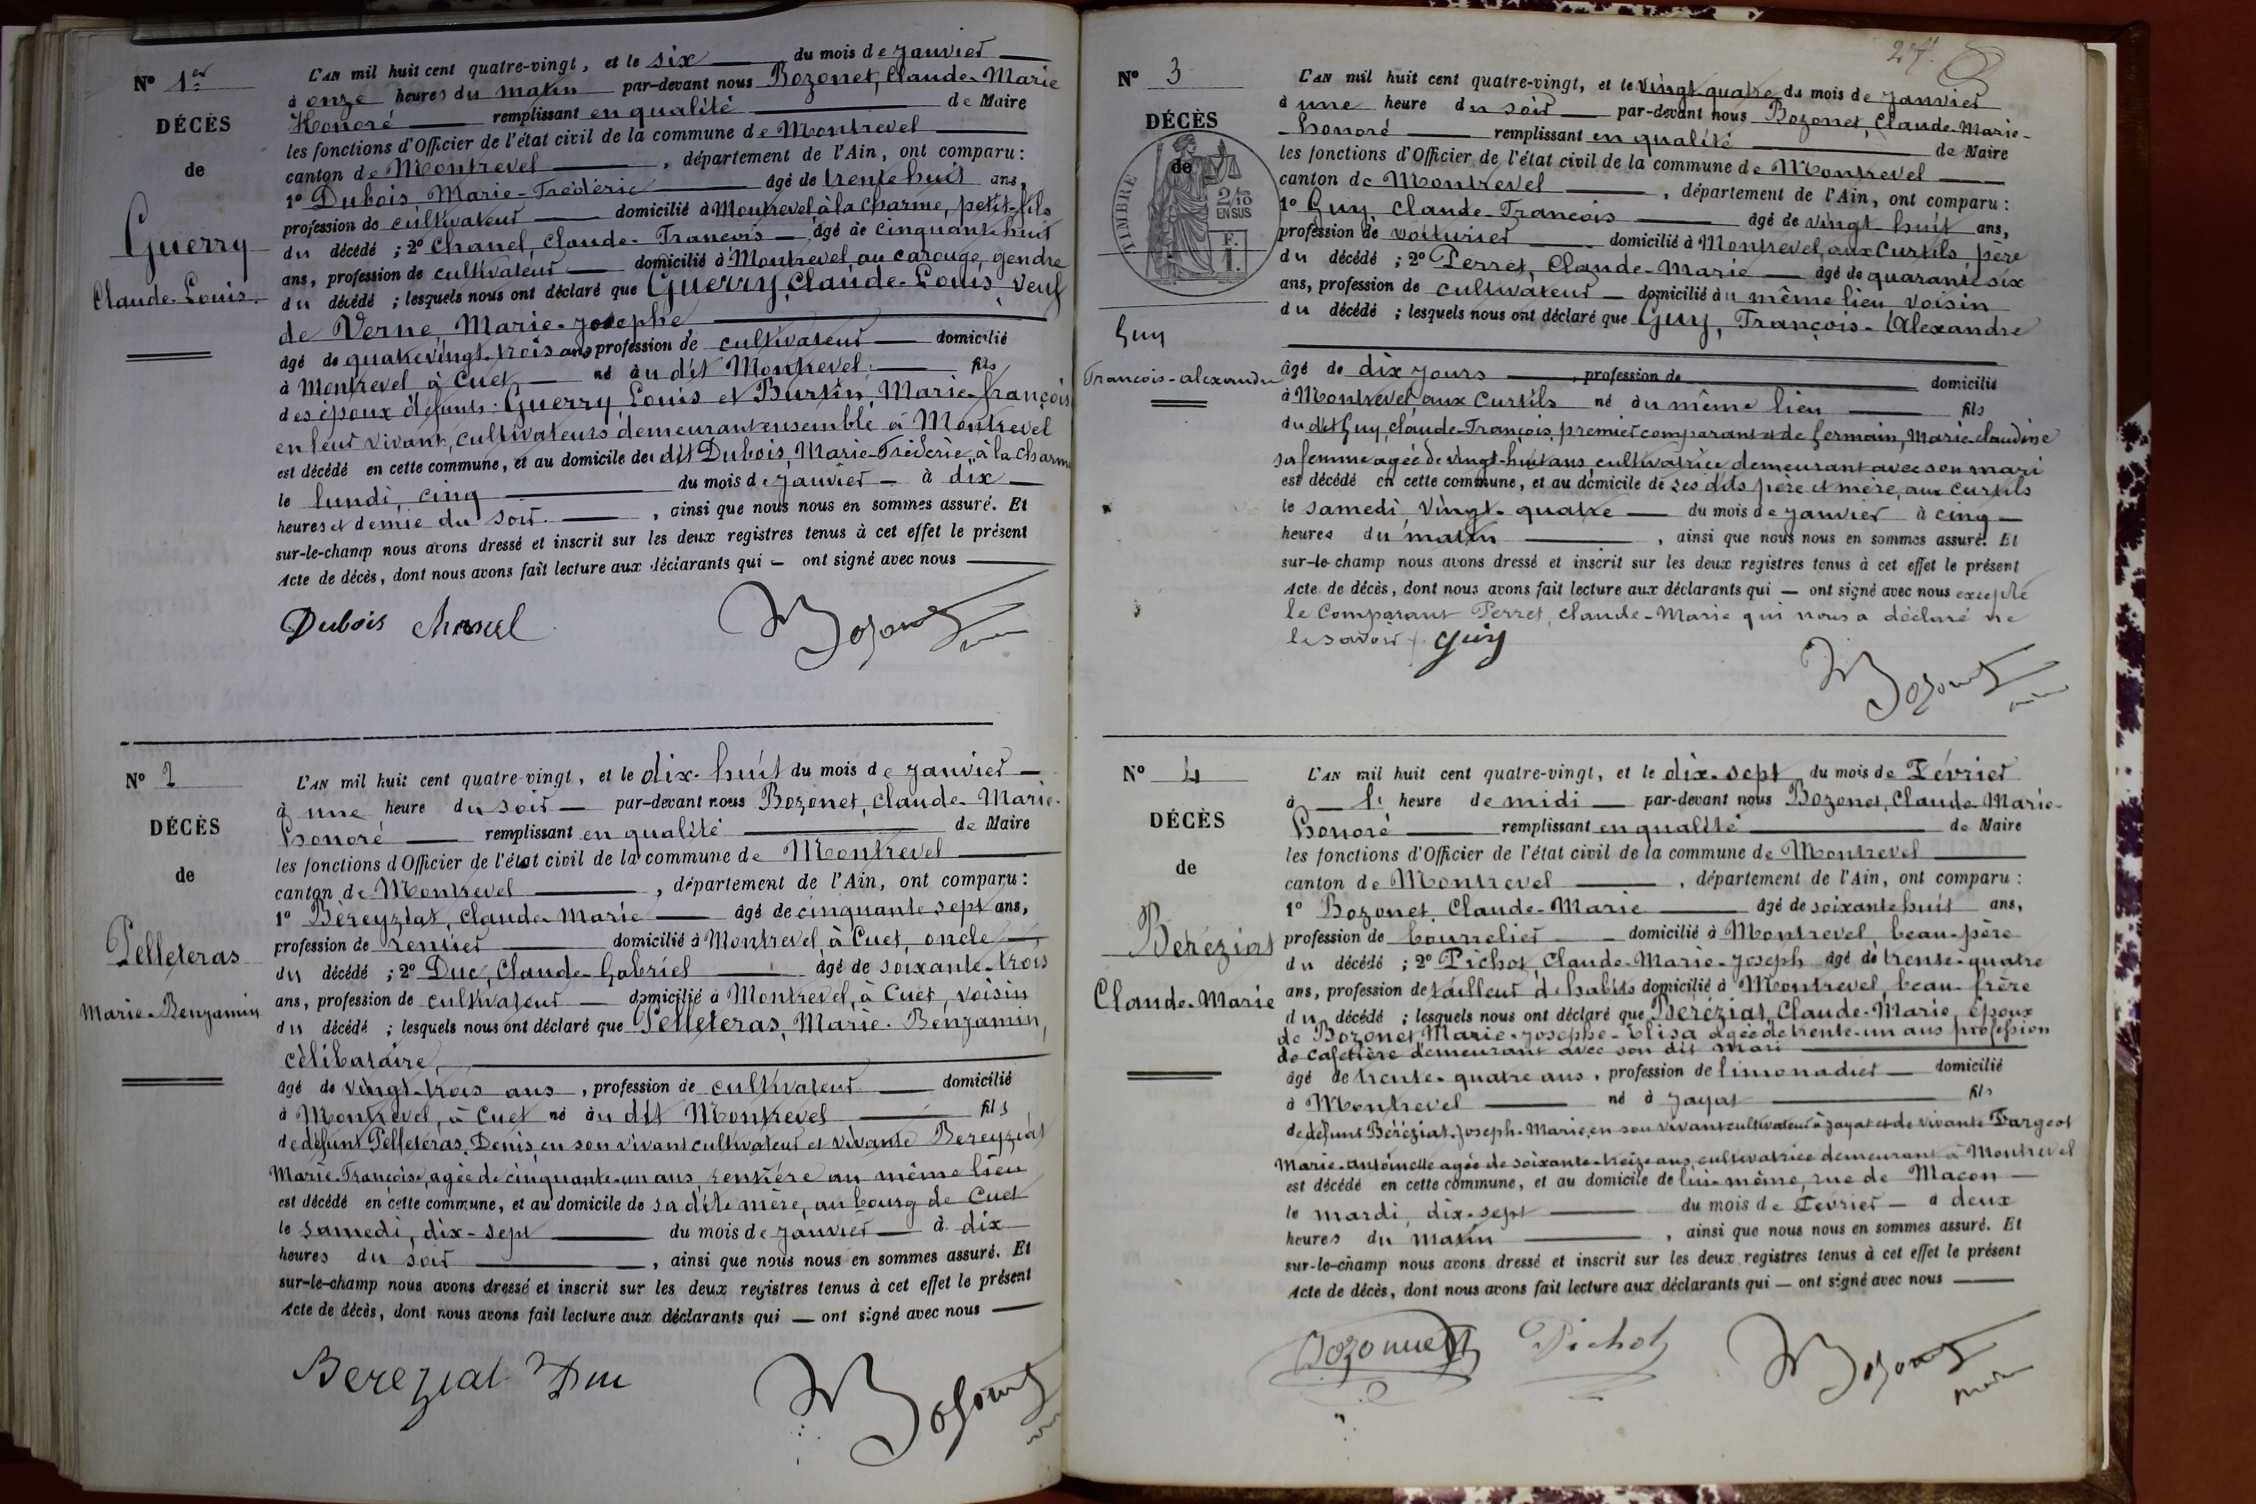 N° 1er
DÉCÈS
de
Guerry
Claude-Louis.
L'AN mil huit cent quatre-vingt, et le six du mois de Janvier
à onze heures du matin par-devant nous Bozonet, Claude-Marie
Honoré remplissant en qualité de Maire
les fonctions d'Officier de l'état civil de la commune de Montrevel
canton de Montrevel, département de l'Ain, ont comparu:
1° Dubois, Marie-Frédéric âgé de trente huit ans,
profession de cultivateur domicilié à Montrevel, à la Charme, petit-fils
du décédé; 2° Chanel, Claude-François âgé de cinquante huit
ans, profession de cultivateur domicilié à Montrevel au carouge, gendre
du décédé; lesquels nous ont déclaré que Guerry, Claude-Louis, veuf
de Verne, Marie-Josephe
âgé de quatrevingt-trois ans profession de cultivateur domicilié
à Montrevel à Cuet, né au dit Montrevel, fils
des époux défunts: Guerry Louis et Burtin, Marie-françoise
en leur vivant, cultivateurs demeurant ensemble à Montrevel
est décédé en cette commune, et au domicile de dit Dubois, Marie-Fréderic, à la Charme
le lundi, cinq du mois de Janvier à dix
heures et demie du soir, ainsi que nous nous en sommes assuré. Et
sur-le-champ nous avons dressé et inscrit sur les deux registres tenus à cet effet le présent
Acte de décès, dont nous avons fait lecture aux déclarants qui — ont signé avec nous
Dubois Chanel Bozonet
N° 2
DÉCÈS
de
Pelleteras
Marie-Benjamin
L'AN mil huit cent quatre-vingt, et le dix-huit du mois de Janvier
à une heure du soir par-devant nous Bozonet, Claude-Marie-
honoré remplissant en qualité de Maire
les fonctions d'Officier de l'état civil de la commune de Montrevel
canton de Montrevel, département de l'Ain, ont comparu:
1° Béreyziat, Claude-Marie âgé de cinquante sept ans,
profession de rentier domicilié à Montrevel, à Cuet, oncle
du décédé; 2° Duc, Claude-Gabriel âgé de soixante-trois
ans, profession de cultivateur domicilié à Montrevel, à Cuet, voisin
du décédé; lesquels nous ont déclaré que Pelleteras, Marie-Benjamin,
célibataire,
âgé de vingt-trois ans, profession de cultivateur domicilié
à Montrevel, à Cuet né au dit Montrevel fils
de défunt Pelleteras, Denis, en son vivant cultivateur et vivante Bereyziat
Marie-Françoise, agée de cinquante-un ans, rentière au même lieu
est décédé en cette commune, et au domicile de sa dite mère, au bourg de Cuet
le samedi, dix-sept du mois de Janvier à dix
heures du soir, ainsi que nous nous en sommes assuré. Et
sur-le-champ nous avons dressé et inscrit sur les deux registres tenus à cet effet le présent
Acte de décès, dont nous avons fait lecture aux déclarants qui — ont signé avec nous
Bereziat Duc Bozonet
N° 3
DÉCÈS
de
TIMBRE
2/10
EN SUS
F.
1.
Guy
François-alexandre
L'AN mil huit cent quatre-vingt, et le vingt quatre du mois de Janvier
à une heure du soir par-devant nous Bozonet, Claude-Marie-
honoré remplissant en qualité de Maire
les fonctions d'Officier de l'état civil de la commune de Montrevel
canton de Montrevel, département de l'Ain, ont comparu:
1° Guy, Claude-François âgé de vingt-huit ans,
profession de voiturier domicilié à Montrevel, aux Curtils, père
du décédé; 2° Perret, Claude-Marie âgé de quarante six
ans, profession de cultivateur domicilié au même lieu, voisin
du décédé; lesquels nous ont déclaré que Guy, François-Alexandre
âgé de dix jours, profession de domicilié
à Montrevel, aux Curtils né au même lieu fils
du dit Guy, Claude-François, premier comparant et de Germain, Marie-claudine
sa femme agée de vingt-huit ans, cultivatrice demeurant avec son mari
est décédé en cette commune, et au domicile de ses dits père et mère, aux Curtils
le samedi vingt-quatre du mois de Janvier à cinq
heures du matin, ainsi que nous nous en sommes assuré. Et
sur-le-champ nous avons dressé et inscrit sur les deux registres tenus à cet effet le présent
Acte de décès, dont nous avons fait lecture aux déclarants qui — ont signé avec nous excepté
le Comparant Perret, Claude-Marie qui nous a déclaré ne
le savoir. Guy
Bozonet
N° 4
DÉCÈS
de
Beréziat
Claude-Marie
L'AN mil huit cent quatre-vingt, et le dix-sept du mois de Février
à l' heure de midi par-devant nous Bozonet, Claude-Marie-
honoré remplissant en qualité de Maire
les fonctions d'Officier de l'état civil de la commune de Montrevel
canton de Montrevel, département de l'Ain, ont comparu:
1° Bozonet, Claude-Marie âgé de soixante huit ans,
profession de bourrelier domicilié à Montrevel, beau-père
du décédé; 2° Pichot, Claude-Marie-Joseph âgé de trente-quatre
ans, profession de tailleur d'habits domicilié à Montrevel, beau-frère
du décédé; lesquels nous ont déclaré que Beréziat, Claude-Marie, époux
de Bozonet, Marie-Josephe-Elisa agée de trente-un ans profession
de cafetière demeurant avec son dit mari
âgé de trente-quatre ans, profession de limonadier domicilié
à Montrevel né à Jayat fils
de défunt Béréziat, Joseph-Marie, en son vivant cultivateur à Jayat et de vivante Fargeot
Marie-Antoinette agée de soixante-treize ans, cultivatrice demeurant à Montrevel
est décédé en cette commune, et au domicile de lui-même, rue de Macon
le mardi, dix-sept du mois de Février à deux
heures du matin, ainsi que nous nous en sommes assuré. Et
sur-le-champ nous avons dressé et inscrit sur les deux registres tenus à cet effet le présent
Acte de décès, dont nous avons fait lecture aux déclarants qui — ont signé avec nous
Bozonnet Pichot Bozonet